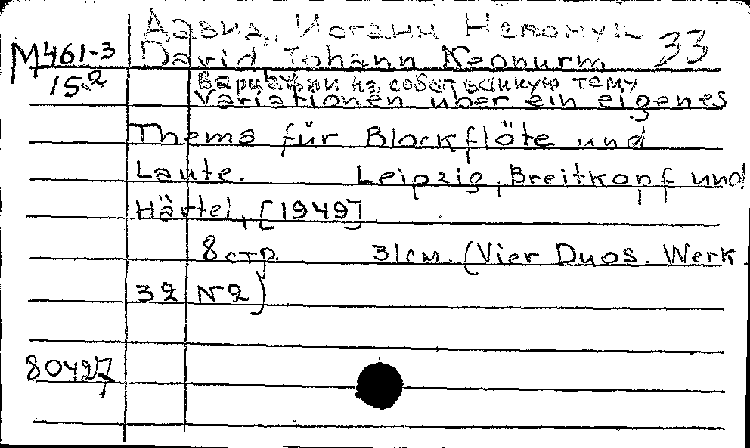 Давид, Иоганн Непомук
M461-3 David, Johann Neonurm 33
15.2 вариации на собственную тему
Variationen über ein eigenes
Thema für Blockflöte und
Laute. Leipzig, Breitkopf und
Härtel, [1949]
8 стр. 31 см. (Vier Duos. Werk.
32 N2)
80427